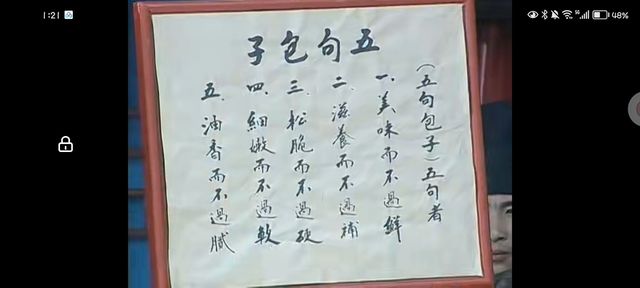 1:21
48%
五句包子
(五句包子)五句者
一、美味而不過鮮
二、滋養而不過補
三、松脆而不過硬
四、細嫩而不過軟
五、油香而不過膩